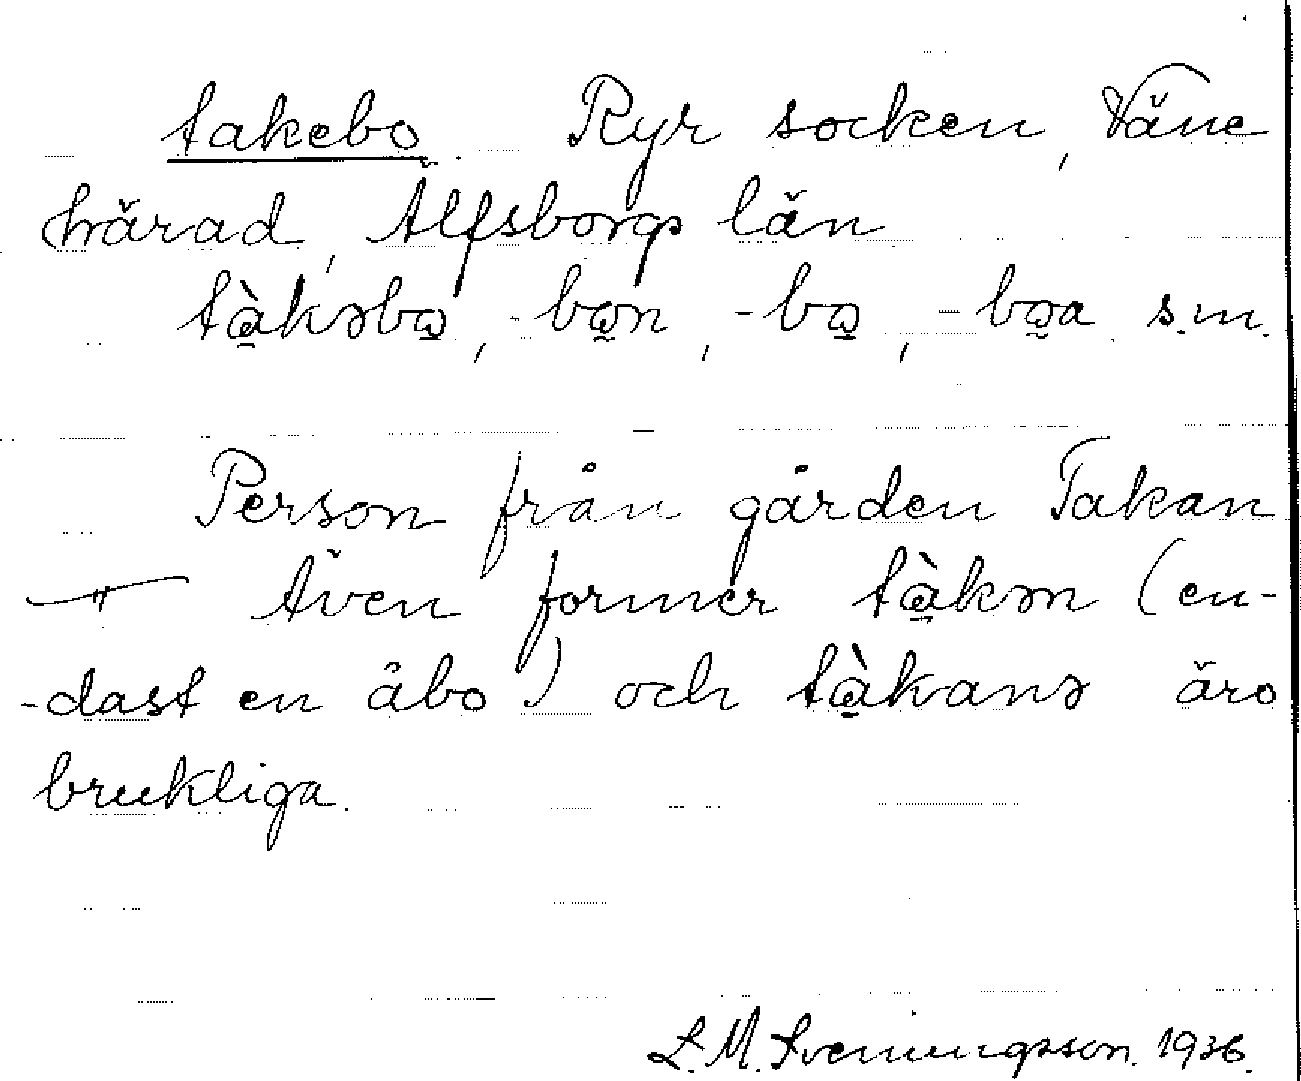 takebo Ryr socken, Väne
härad, Älfsborgs län
tàkəbo, -bon, -bo, -boa s.m.
Person från gården Takan
— " Även former tàkən (en-
-dast en åbo!) och tàkanə äro
brukliga.
L. M. Svenungsson. 1936.